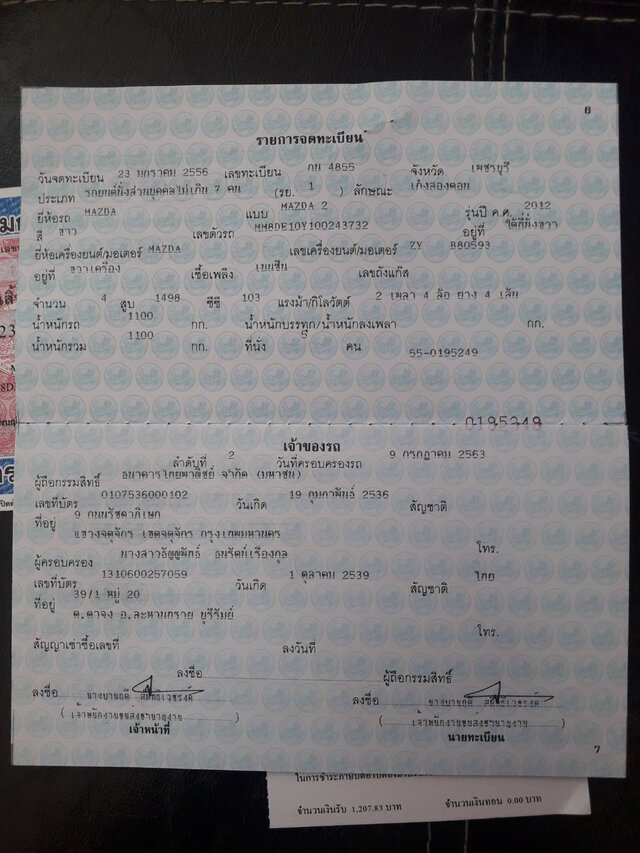 6
รายการจดทะเบียน
วันจดทะเบียน 23 มกราคม 2556 เลขทะเบียน กน 4855 จังหวัด เพชรบุรี
ประเภท รถยนต์นั่งส่วนบุคคลไม่เกิน 7 คน (รย. 1 ) ลักษณะ เก๋งสองตอน
ยี่ห้อรถ MAZDA แบบ MAZDA 2 รุ่นปี ค.ศ. 2012
สี ขาว เลขตัวรถ MM8DE10Y100243732 อยู่ที่ ใต้ที่นั่งขวา
ยี่ห้อเครื่องยนต์/มอเตอร์ MAZDA เลขเครื่องยนต์/มอเตอร์ ZY B80593
อยู่ที่ ขวาเครื่อง เชื้อเพลิง เบนซิน เลขถังแก๊ส
จำนวน 4 สูบ 1498 ซีซี 103 แรงม้า/กิโลวัตต์ 2 เพลา 4 ล้อ ยาง 4 เส้น
น้ำหนักรถ 1100 กก. น้ำหนักบรรทุก/น้ำหนักลงเพลา กก.
น้ำหนักรวม 1100 กก. ที่นั่ง 5 คน
55-0195249
0195249
เจ้าของรถ
ลำดับที่ 2 วันที่ครอบครองรถ 9 กรกฎาคม 2563
ผู้ถือกรรมสิทธิ์ ธนาคารไทยพาณิชย์ จำกัด (มหาชน)
เลขที่บัตร 0107536000102 วันเกิด 19 กุมภาพันธ์ 2536 สัญชาติ
ที่อยู่ 9 ถนนรัชดาภิเษก
แขวงจตุจักร เขตจตุจักร กรุงเทพมหานคร
โทร.
ผู้ครอบครอง นางสาวธัญพิมพ์ ธนรัตน์เรืองกุล
เลขที่บัตร 1310600257059 วันเกิด 1 ตุลาคม 2539 สัญชาติ ไทย
ที่อยู่ 39/1 หมู่ 20
ต.ตาจง อ.ละหานทราย บุรีรัมย์
โทร.
สัญญาเช่าซื้อเลขที่ ลงวันที่
ลงชื่อ ผู้ถือกรรมสิทธิ์
ลงชื่อ ลงชื่อ
(เจ้าพนักงานขนส่งชำนาญงาน) (เจ้าพนักงานขนส่งชำนาญงาน)
เจ้าหน้าที่ นายทะเบียน
7
จำนวนเงินรับ 1,207.83 บาท จำนวนเงินทอน 0.00 บาท